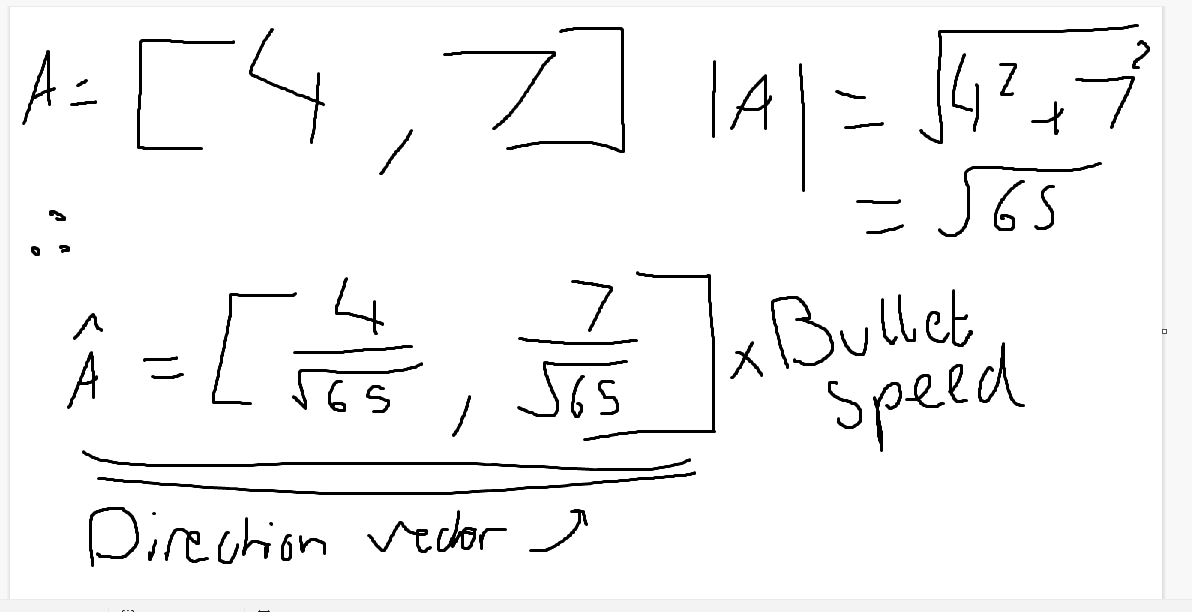 A = [4, 7] |A| = √4² + 7²
= √65
∴
Â = [4/√65, 7/√65] × Bullet speed
Direction vector ↗